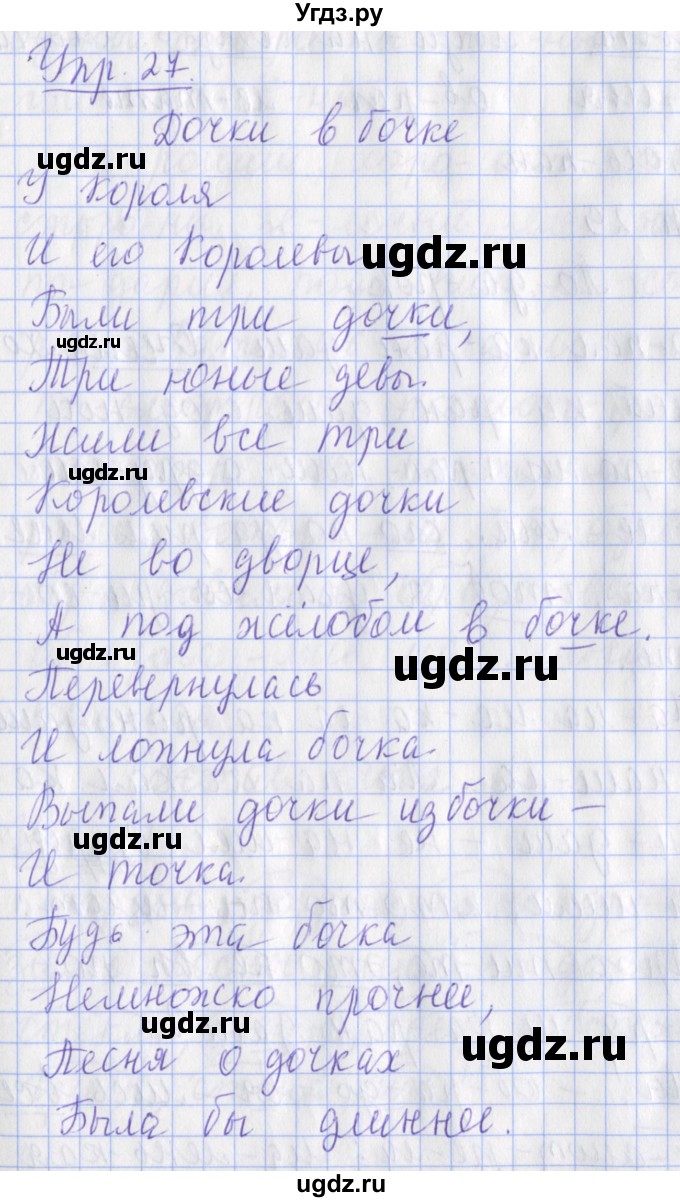 Угдз.ру
Упр. 27.
Дочки в бочке
ugdz.ru
У Короля
И его Королевы
ugdz.ru
Были три дочки,
ugdz.ru
Три юные девы.
Жили все три
ugdz.ru
Королевские дочки
Не во дворце,
А под жёлобом в бочке.
ugdz.ru
ugdz.ru
Перевернулась
И лопнула бочка.
Выпали дочки из бочки –
ugdz.ru
И точка.
Будь эта бочка
Немножко прочнее,
ugdz.ru
ugdz.ru
Песня о дочках
Была бы длиннее.
ugdz.ru